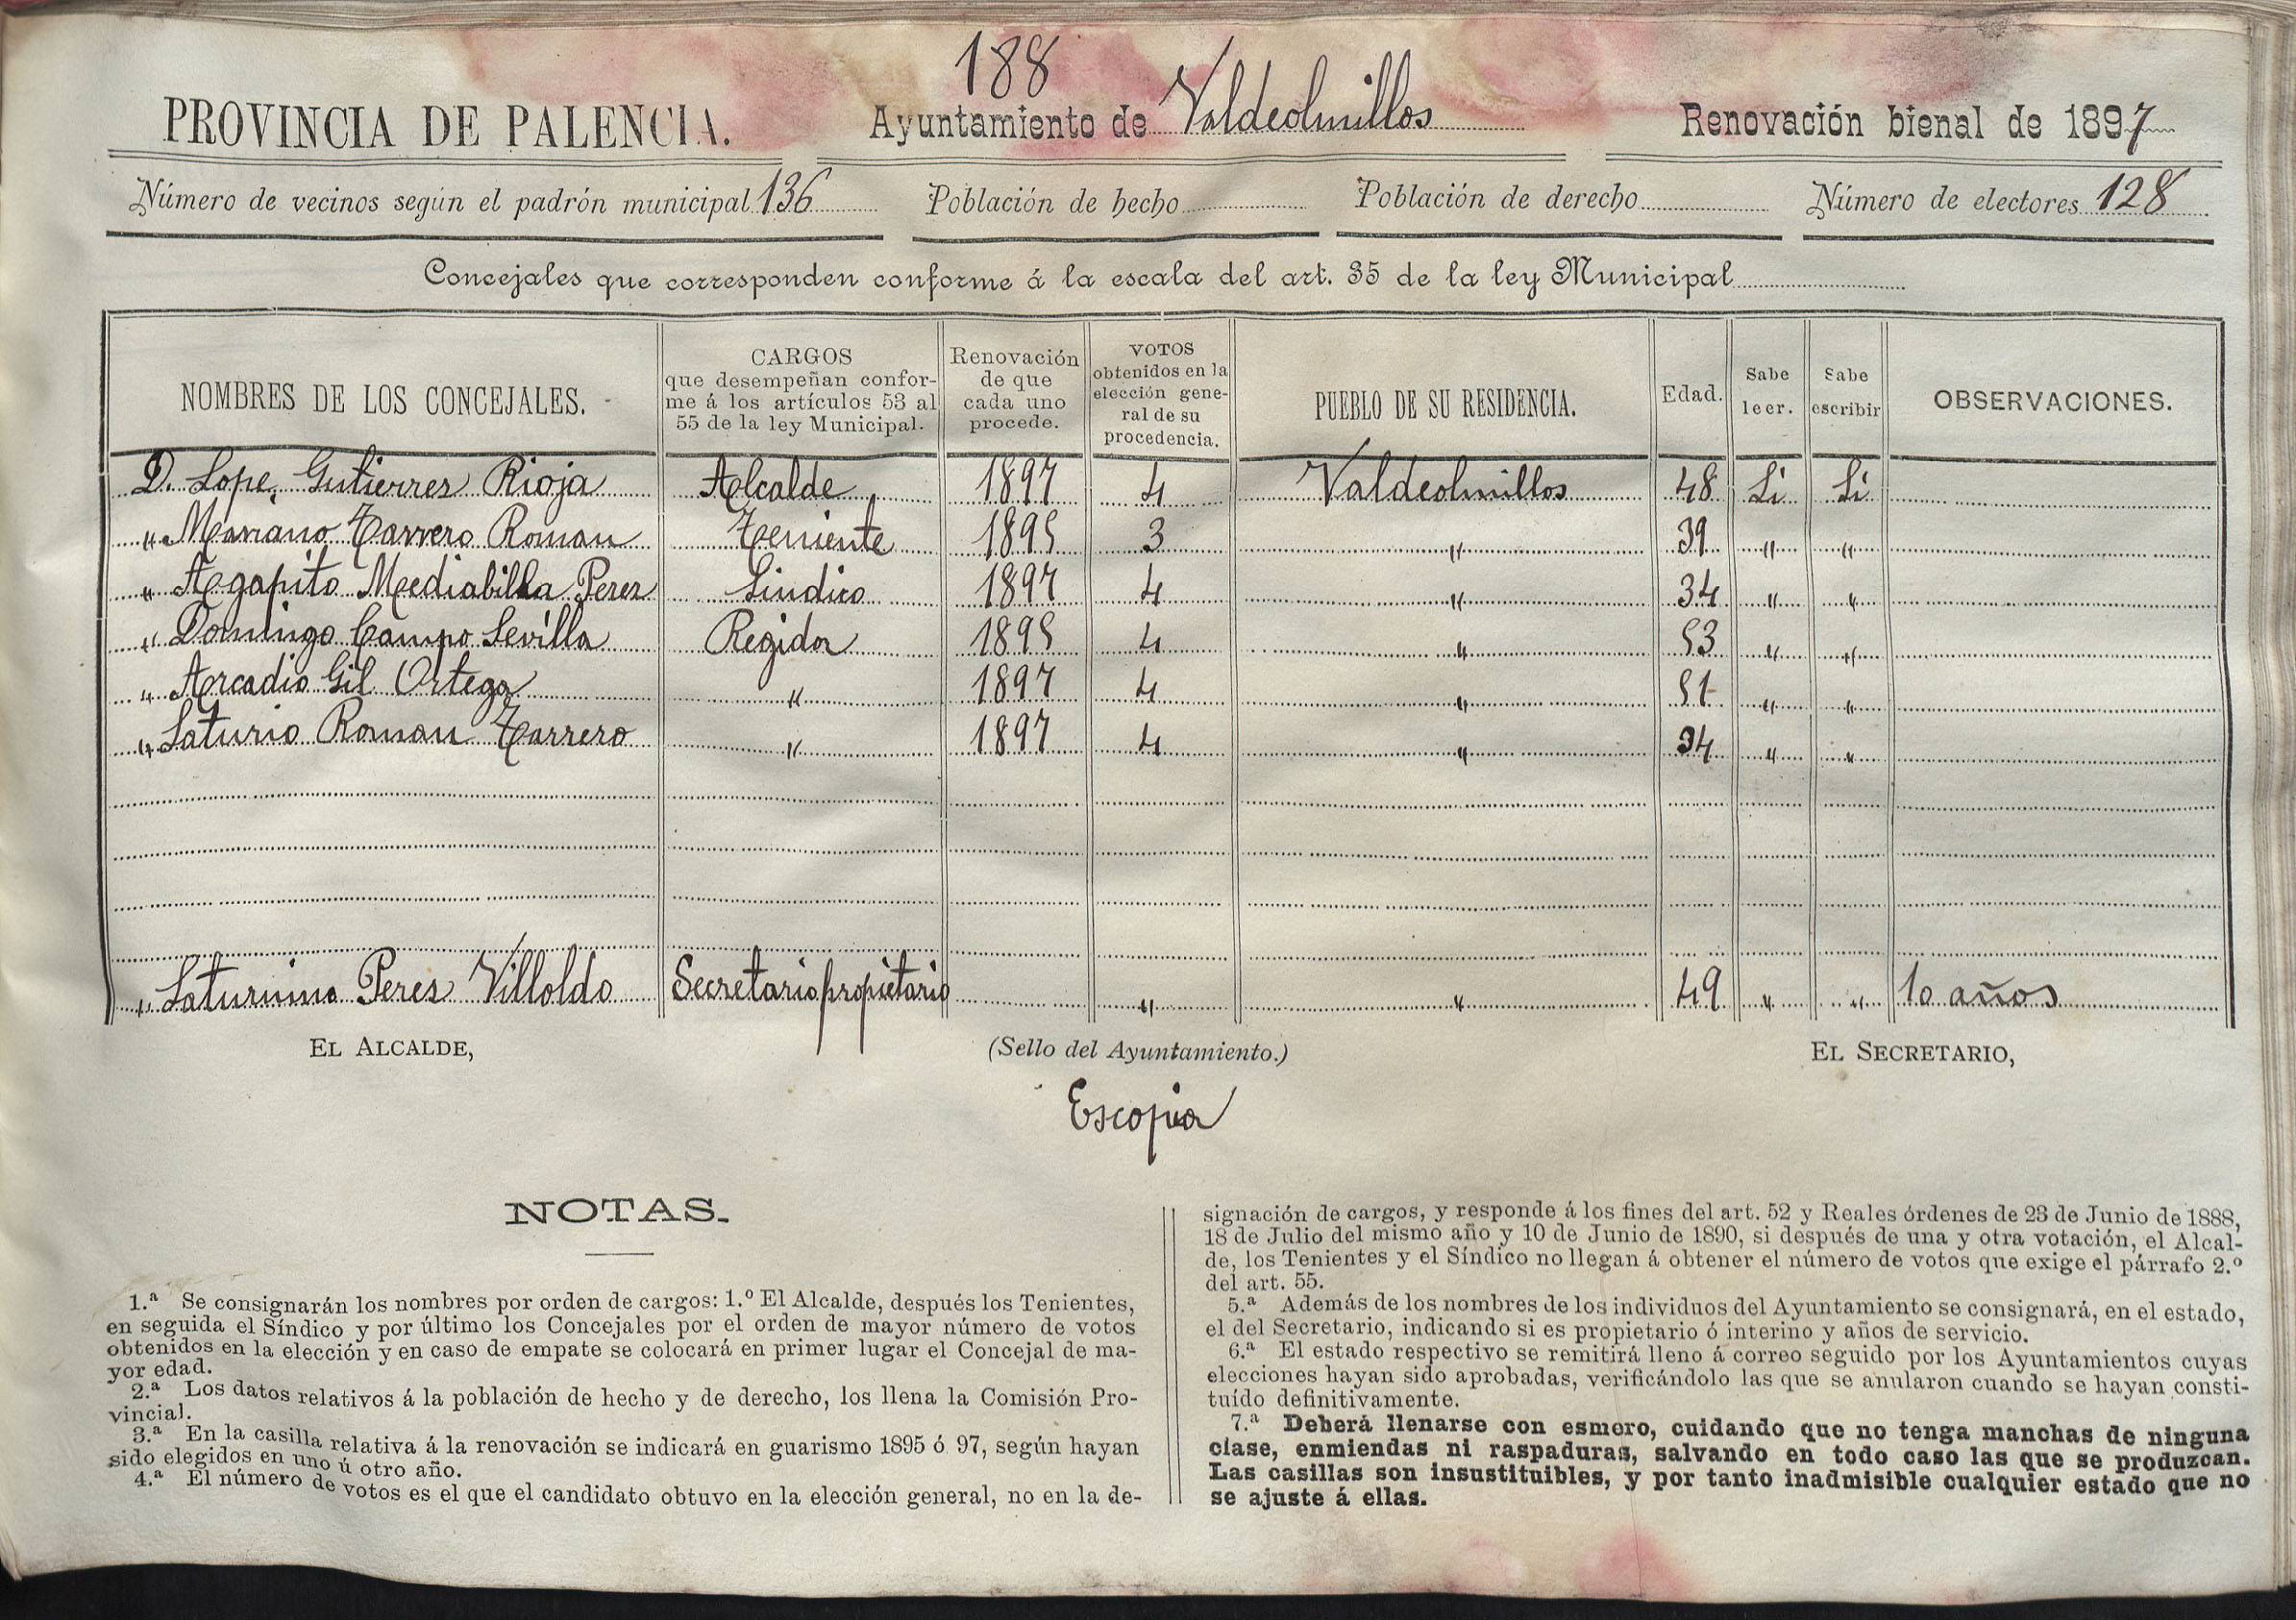 188
PROVINCIA DE PALENCIA. Ayuntamiento de Valdeolmillos Renovación bienal de 1897
Número de vecinos según el padrón municipal 136 Población de hecho Población de derecho Número de electores 128
Concejales que corresponden conforme á la escala del art. 35 de la ley Municipal
NOMBRES DE LOS CONCEJALES.
CARGOS
que desempeñan confor-
me á los artículos 53 al
55 de la ley Municipal.
Renovación
de que
cada uno
procede.
VOTOS
obtenidos en la
elección gene-
ral de su
procedencia.
PUEBLO DE SU RESIDENCIA.
Edad.
Sabe
leer.
Sabe
escribir
OBSERVACIONES.
D. Lope Gutierrez Rioja Alcalde 1897 4 Valdeolmillos 48 Si Si
" Mariano Tarrero Roman Teniente 1895 3 " 39 " "
" Agapito Mediabilla Perez Sindico 1897 4 " 34 " "
" Domingo Campo Sevilla Regidor 1895 4 " 53 " "
" Arcadio Gil Ortega " 1897 4 " 51 " "
" Saturio Roman Tarrero " 1897 4 " 34 " "
" Saturnino Perez Villoldo Secretario propietario " " 49 " " 10 años
EL ALCALDE, (Sello del Ayuntamiento.) EL SECRETARIO,
Escopia
NOTAS.
1.ª Se consignarán los nombres por orden de cargos: 1.º El Alcalde, después los Tenientes,
en seguida el Síndico y por último los Concejales por el orden de mayor número de votos
obtenidos en la elección y en caso de empate se colocará en primer lugar el Concejal de ma-
yor edad.
2.ª Los datos relativos á la población de hecho y de derecho, los llena la Comisión Pro-
vincial.
3.ª En la casilla relativa á la renovación se indicará en guarismo 1895 ó 97, según hayan
sido elegidos en uno ú otro año.
4.ª El número de votos es el que el candidato obtuvo en la elección general, no en la de-
signación de cargos, y responde á los fines del art. 52 y Reales órdenes de 23 de Junio de 1888,
18 de Julio del mismo año y 10 de Junio de 1890, si después de una y otra votación, el Alcal-
de, los Tenientes y el Síndico no llegan á obtener el número de votos que exige el párrafo 2.º
del art. 55.
5.ª Además de los nombres de los individuos del Ayuntamiento se consignará, en el estado,
el del Secretario, indicando si es propietario ó interino y años de servicio.
6.ª El estado respectivo se remitirá lleno á correo seguido por los Ayuntamientos cuyas
elecciones hayan sido aprobadas, verificándolo las que se anularon cuando se hayan consti-
tuído definitivamente.
7.ª Deberá llenarse con esmero, cuidando que no tenga manchas de ninguna
clase, enmiendas ni raspaduras, salvando en todo caso las que se produzcan.
Las casillas son insustituibles, y por tanto inadmisible cualquier estado que no
se ajuste á ellas.